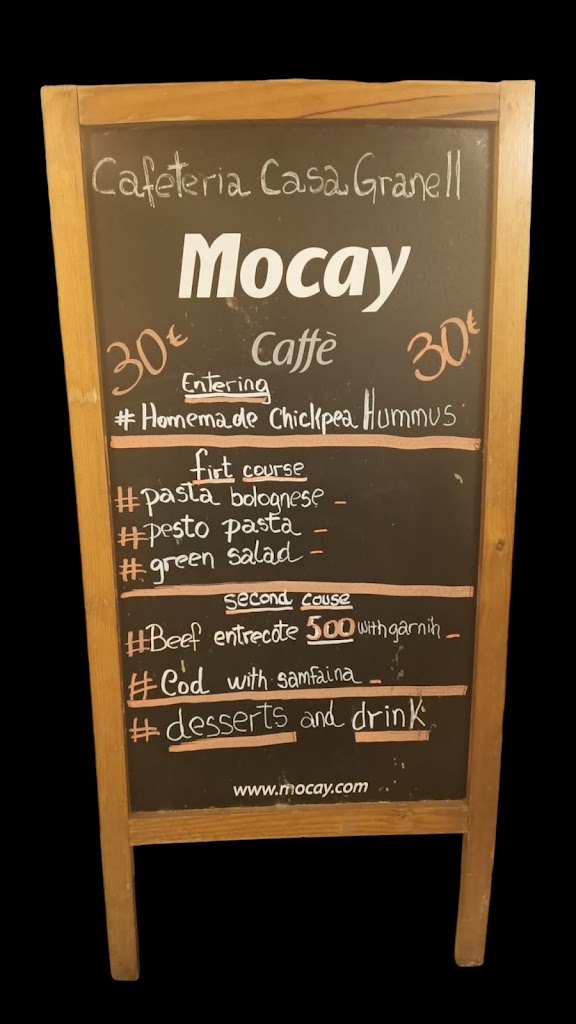 Cafeteria Casa Granell
Mocay
Caffè
30€ 30€
Entering
# Homemade Chickpea Hummus
firt course
# pasta bolognese -
# pesto pasta -
# green salad -
second couse
# Beef entrecote 500 with garnih -
# Cod with samfaina -
# desserts and drink
www.mocay.com